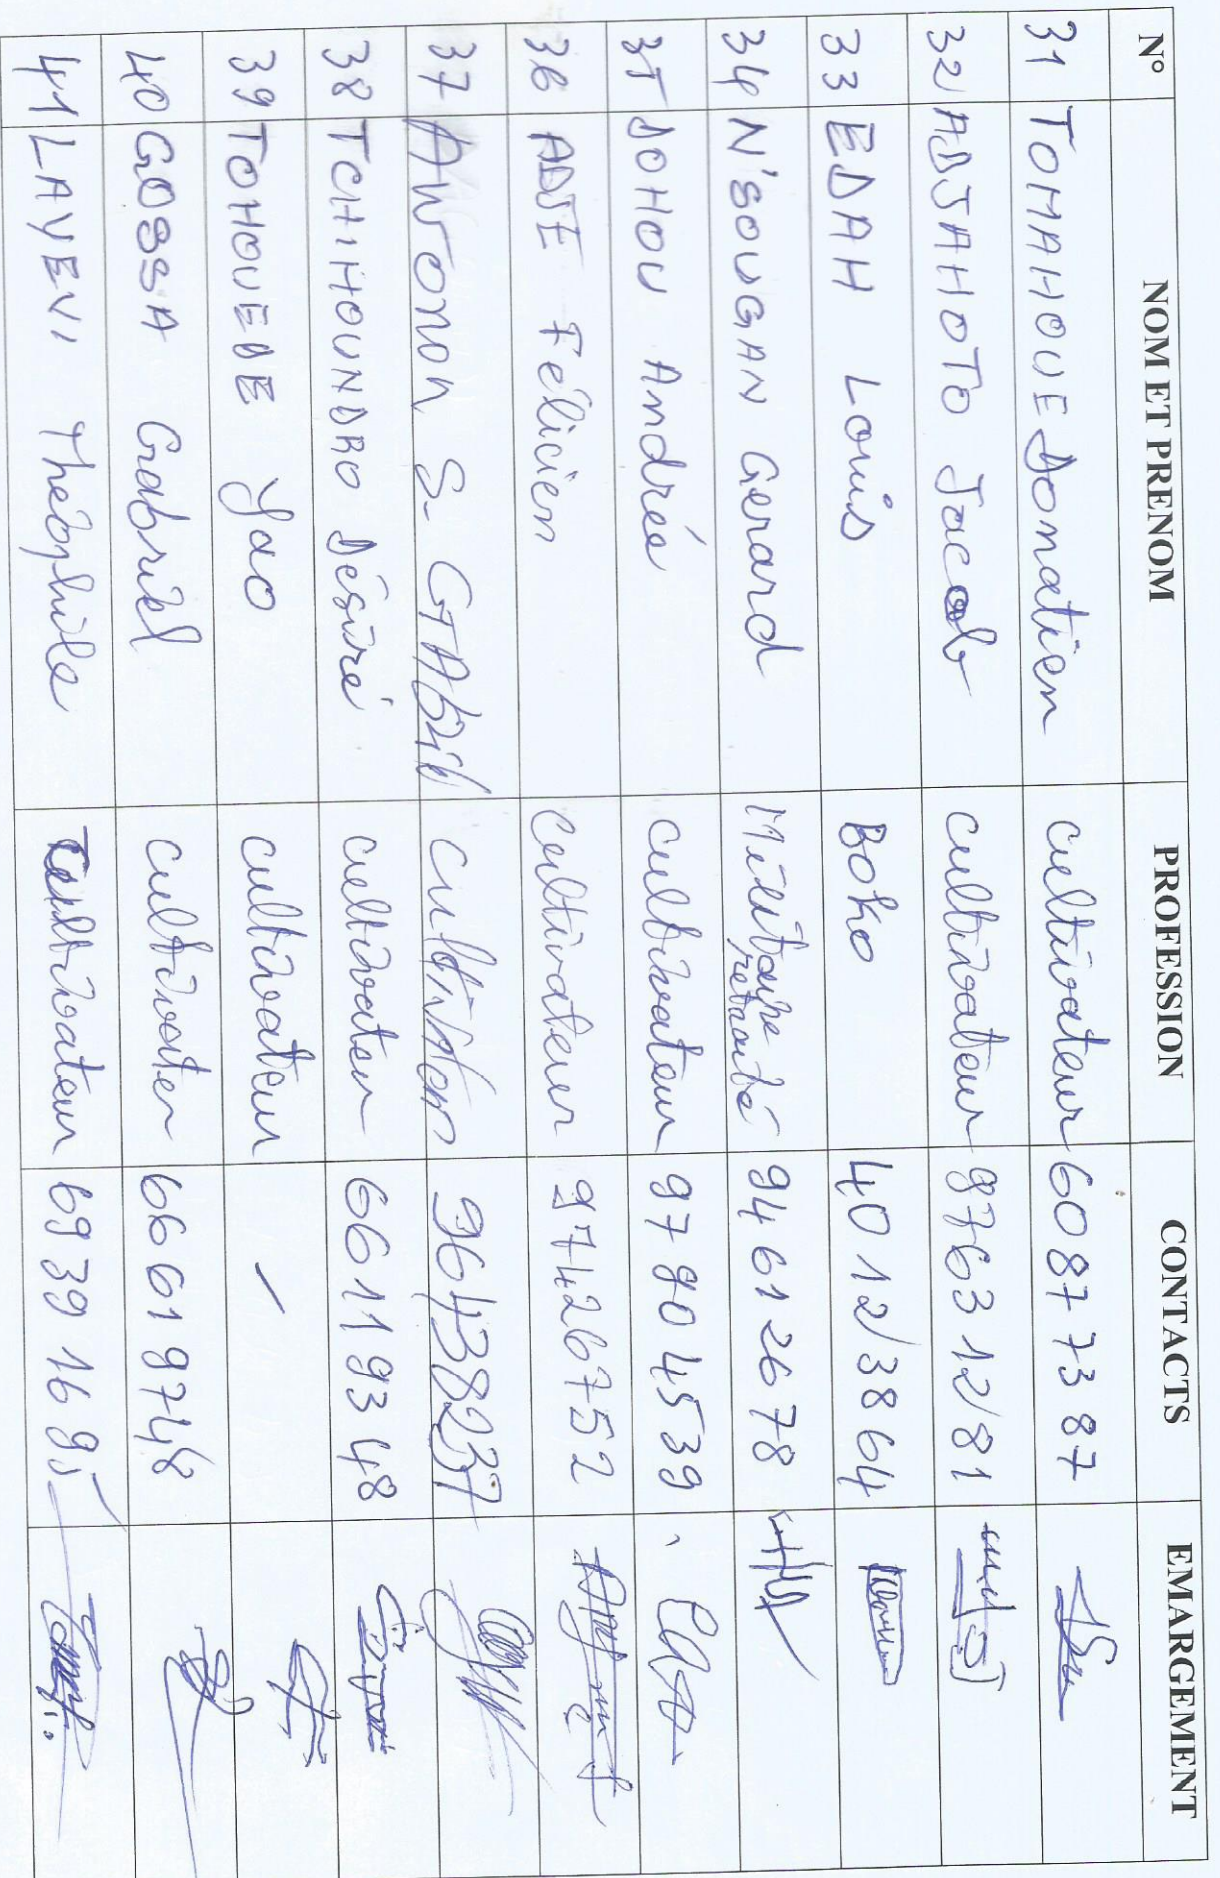 N° NOM ET PRENOM PROFESSION CONTACTS EMARGEMENT
31 TOMAHOUE Donatien cultivateur 60 87 73 87
32 ADJAHOTO Jacob cultivateur 97 63 12 81
33 EDAH Louis Boko 40 12 38 64
34 N'SOUGAN Gerard Militaire retraité 94 61 26 78
35 DOHOU André cultivateur 97 90 45 39
36 ADJE Félicien Cultivateur 97 42 67 52
37 AWonon S- GTAbriel cultivateur 96438237
38 TCHIHOUNDRO Désiré cultivateur 66 11 93 48
39 TOHOUEDE Yao cultivateur /
40 GOSSA Gabriel cultivateur 66 61 97 48
41 LAYEVI Théophile Cultivateur 69 39 16 95